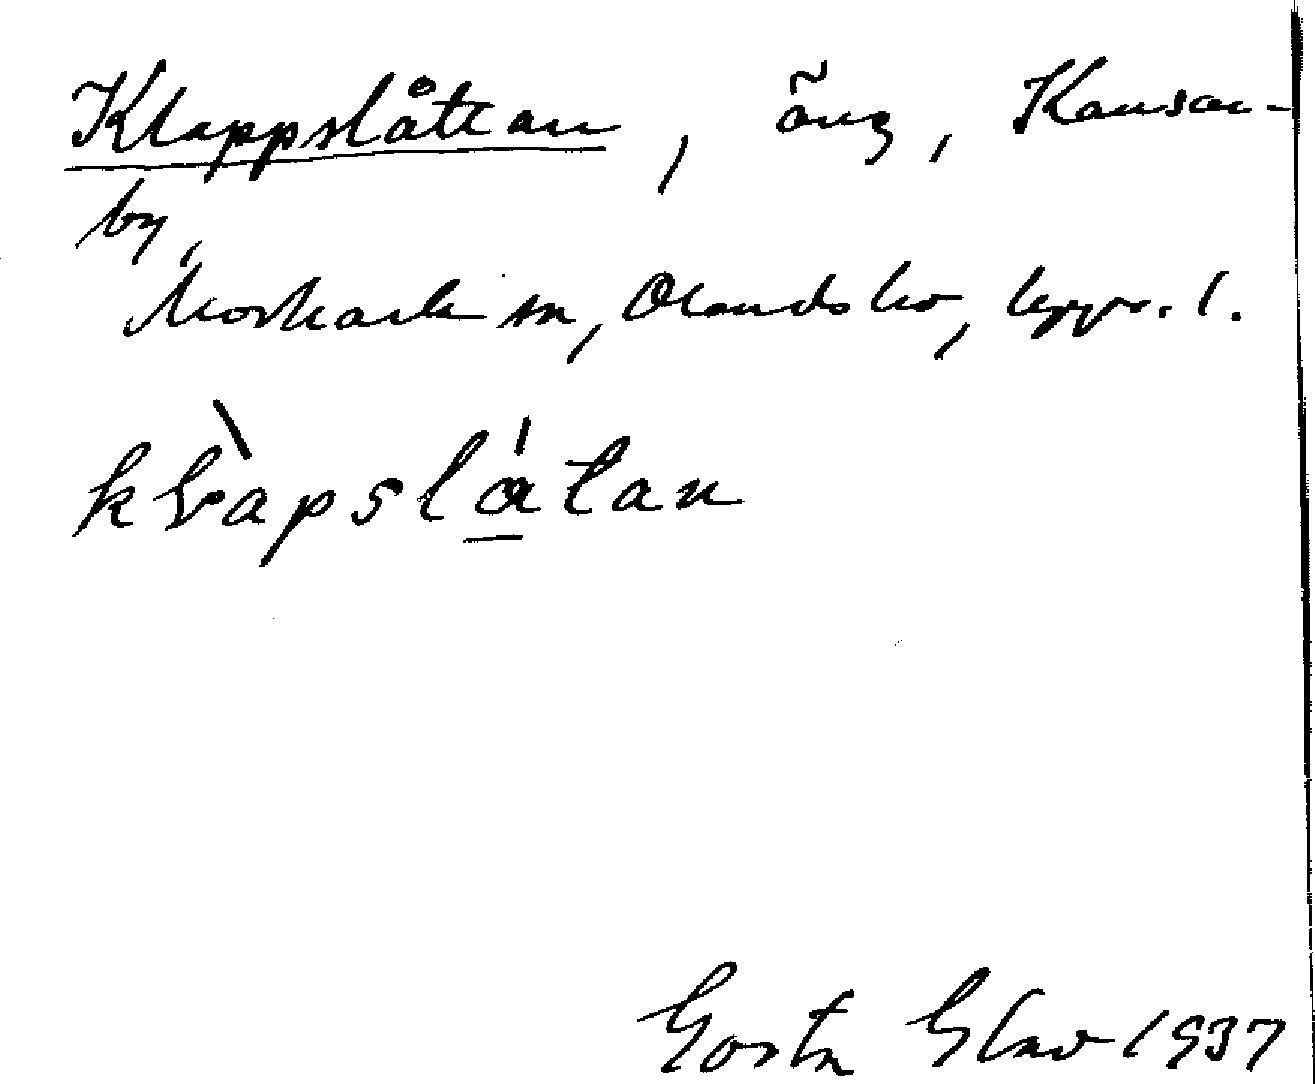 Klappslåttan, äng, Kansar-
by,
Morkarla sn, Olands hd, Uppl.
klapslåtan
Gösta Elav 1937